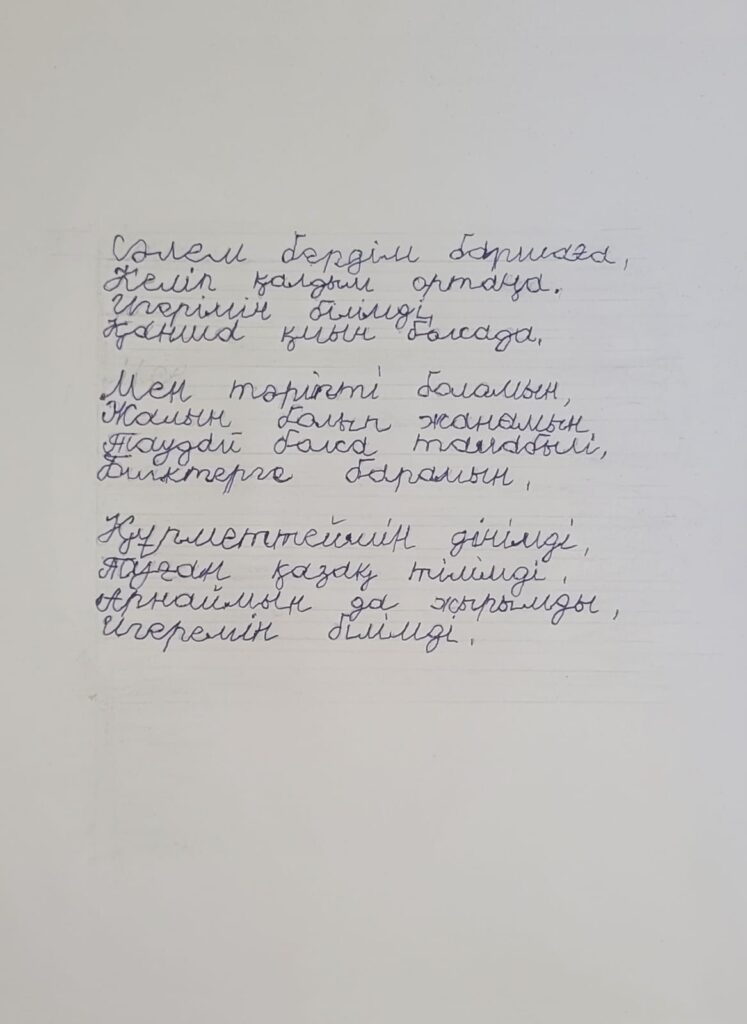 Сәлем бердім баршаға,
Келіп қалдым ортаңа.
Игерімін білімді,
Қанша қиын болсада.
Мен тәріпті боламын,
Жалын болып жанамын,
Таудай болса талабымі,
Биіктерге барамын,
Құрметтеймін дінімді,
Туған қазақ тілімді,
Арнаймын да жырымды,
Игеремін білімді.